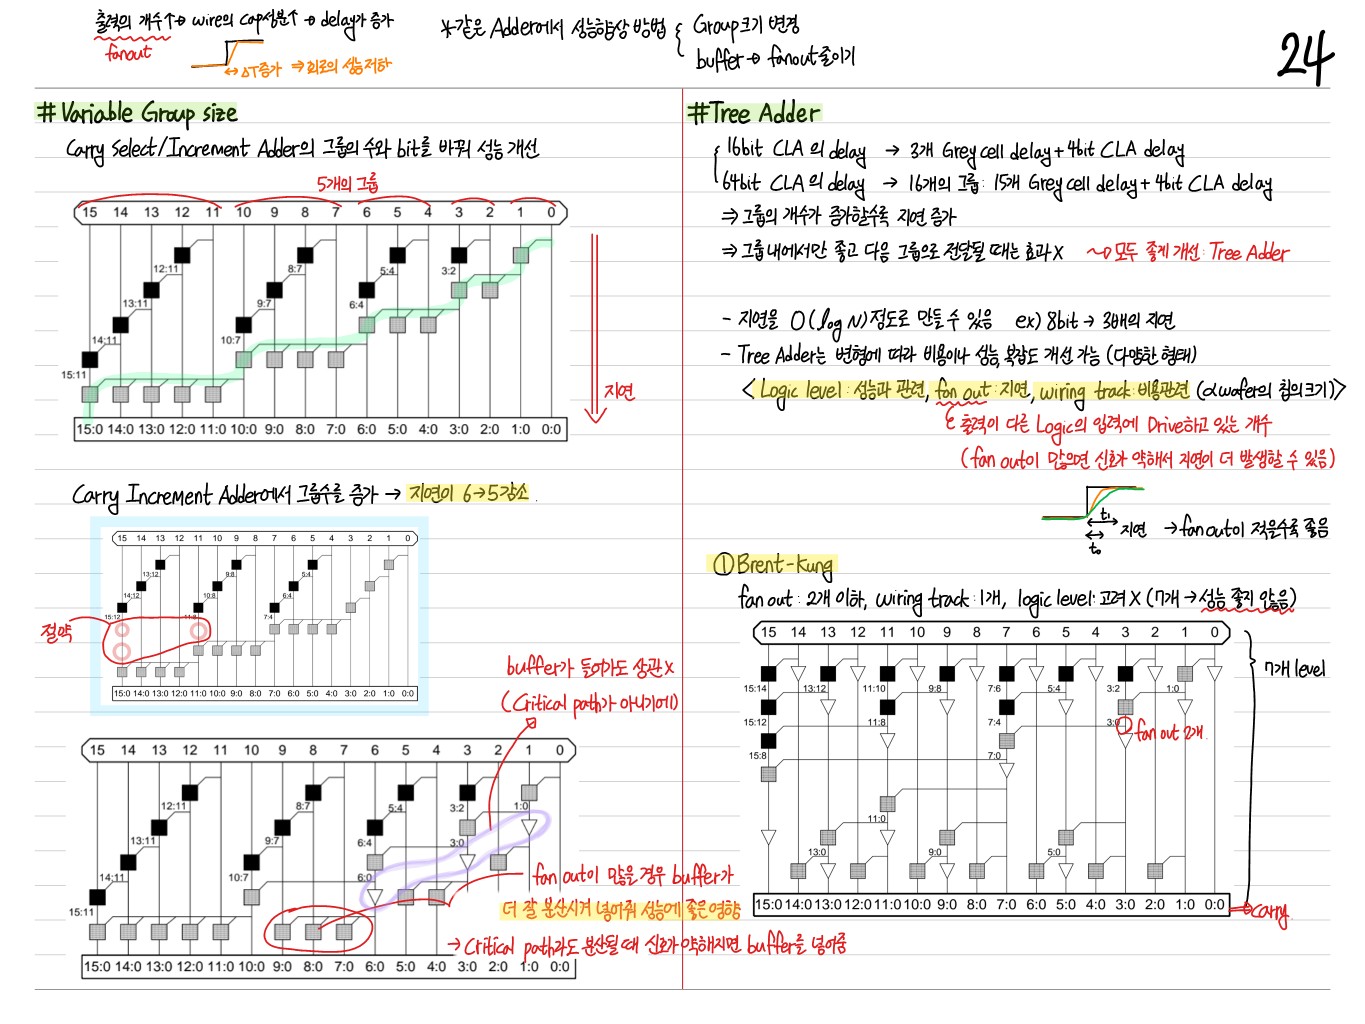 출력의 개수↑→ wire의 cap성분↑ → delay가 증가
fanout
↔ ΔT증가 ⇒ 회로의 성능저하
*같은 Adder에서 성능향상 방법 { Group크기 변경
buffer → fanout줄이기
24
# Variable Group size
Carry Select/Increment Adder의 그룹의 수와 bit를 바꿔 성능 개선
5개의 그룹
15 14 13 12 11 10 9 8 7 6 5 4 3 2 1 0
12:11 8:7 5:4 3:2
13:11 9:7 6:4
14:11 10:7
15:11
지연
15:0 14:0 13:0 12:0 11:0 10:0 9:0 8:0 7:0 6:0 5:0 4:0 3:0 2:0 1:0 0:0
Carry Increment Adder에서 그룹수를 증가 → 지연이 6→5감소.
15 14 13 12 11 10 9 8 7 6 5 4 3 2 1 0
13:12 9:8 5:4
14:12 10:8 6:4
15:12 11:8 7:4
절약
15:0 14:0 13:0 12:0 11:0 10:0 9:0 8:0 7:0 6:0 5:0 4:0 3:0 2:0 1:0 0:0
buffer가 들어가도 상관 X
(Critical path가 아니기에)
15 14 13 12 11 10 9 8 7 6 5 4 3 2 1 0
12:11 8:7 5:4 3:2 1:0
13:11 9:7 6:4 3:0
14:11 10:7 6:0
15:11
fan out이 많을 경우 buffer가
더 잘 분산시켜 넣어줘 성능에 좋은영향
→ Critical path라도 분산될 때 신호가 약해지면 buffer를 넣어줌
15:0 14:0 13:0 12:0 11:0 10:0 9:0 8:0 7:0 6:0 5:0 4:0 3:0 2:0 1:0 0:0
# Tree Adder
{ 16bit CLA 의 delay → 3개 Grey cell delay + 4bit CLA delay
64bit CLA 의 delay → 16개의 그룹: 15개 Grey cell delay + 4bit CLA delay
⇒ 그룹의 개수가 증가할수록 지연 증가
⇒ 그룹 내에서만 좋고 다음 그룹으로 전달될 때는 효과 X ~→ 모두 좋게 개선: Tree Adder
- 지연을 O(log N)정도로 만들 수 있음 ex) 8bit → 3배의 지연
- Tree Adder는 변형에 따라 비용이나 성능, 복잡도 개선 가능 (다양한 형태)
< Logic level : 성능과 관련, fan out : 지연, wiring track : 비용관련 (∝wafer의 칩의크기)>
출력이 다른 Logic의 입력에 Drive하고 있는 개수
(fan out이 많으면 신호가 약해서 지연이 더 발생할 수 있음)
t₁
지연 → fan out이 적을수록 좋음
t₀
① Brent-Kung
fan out : 2개 이하, wiring track : 1개, logic level: 고려 X (7개 → 성능 좋지 않음)
15 14 13 12 11 10 9 8 7 6 5 4 3 2 1 0
7개 level
15:14 13:12 11:10 9:8 7:6 5:4 3:2 1:0
15:12 11:8 7:4 3:0
fan out 2개.
15:8 7:0
11:0
13:0 9:0 5:0
15:0 14:0 13:0 12:0 11:0 10:0 9:0 8:0 7:0 6:0 5:0 4:0 3:0 2:0 1:0 0:0
→ carry